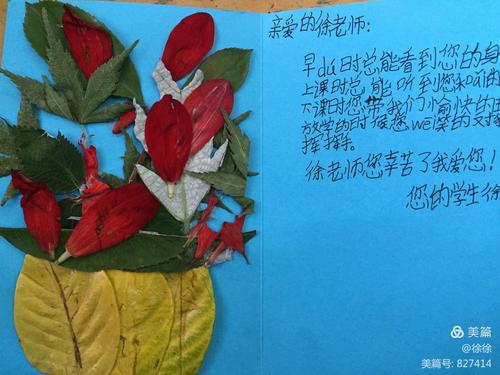 亲爱的徐老师:
早dú时总能看到您的身
上课时总能听到您和ǎi的
下课时您带我们愉快的
放学的时候您wēi笑的对
挥挥手。
徐老师您辛苦了我爱您!
您的学生徐
美篇
@徐徐
美篇号: 827414